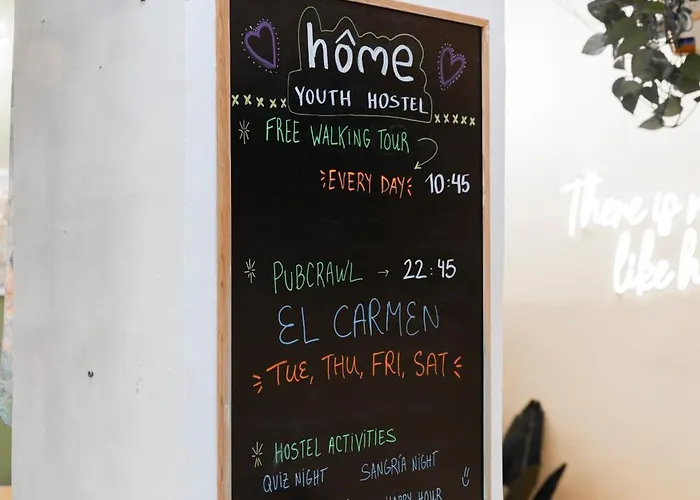 hôme
YOUTH HOSTEL
FREE WALKING TOUR
EVERY DAY 10:45
PUBCRAWL → 22:45
EL CARMEN
TUE, THU, FRI, SAT
HOSTEL ACTIVITIES
QUIZ NIGHT SANGRÍA NIGHT
HAPPY HOUR
There is
like